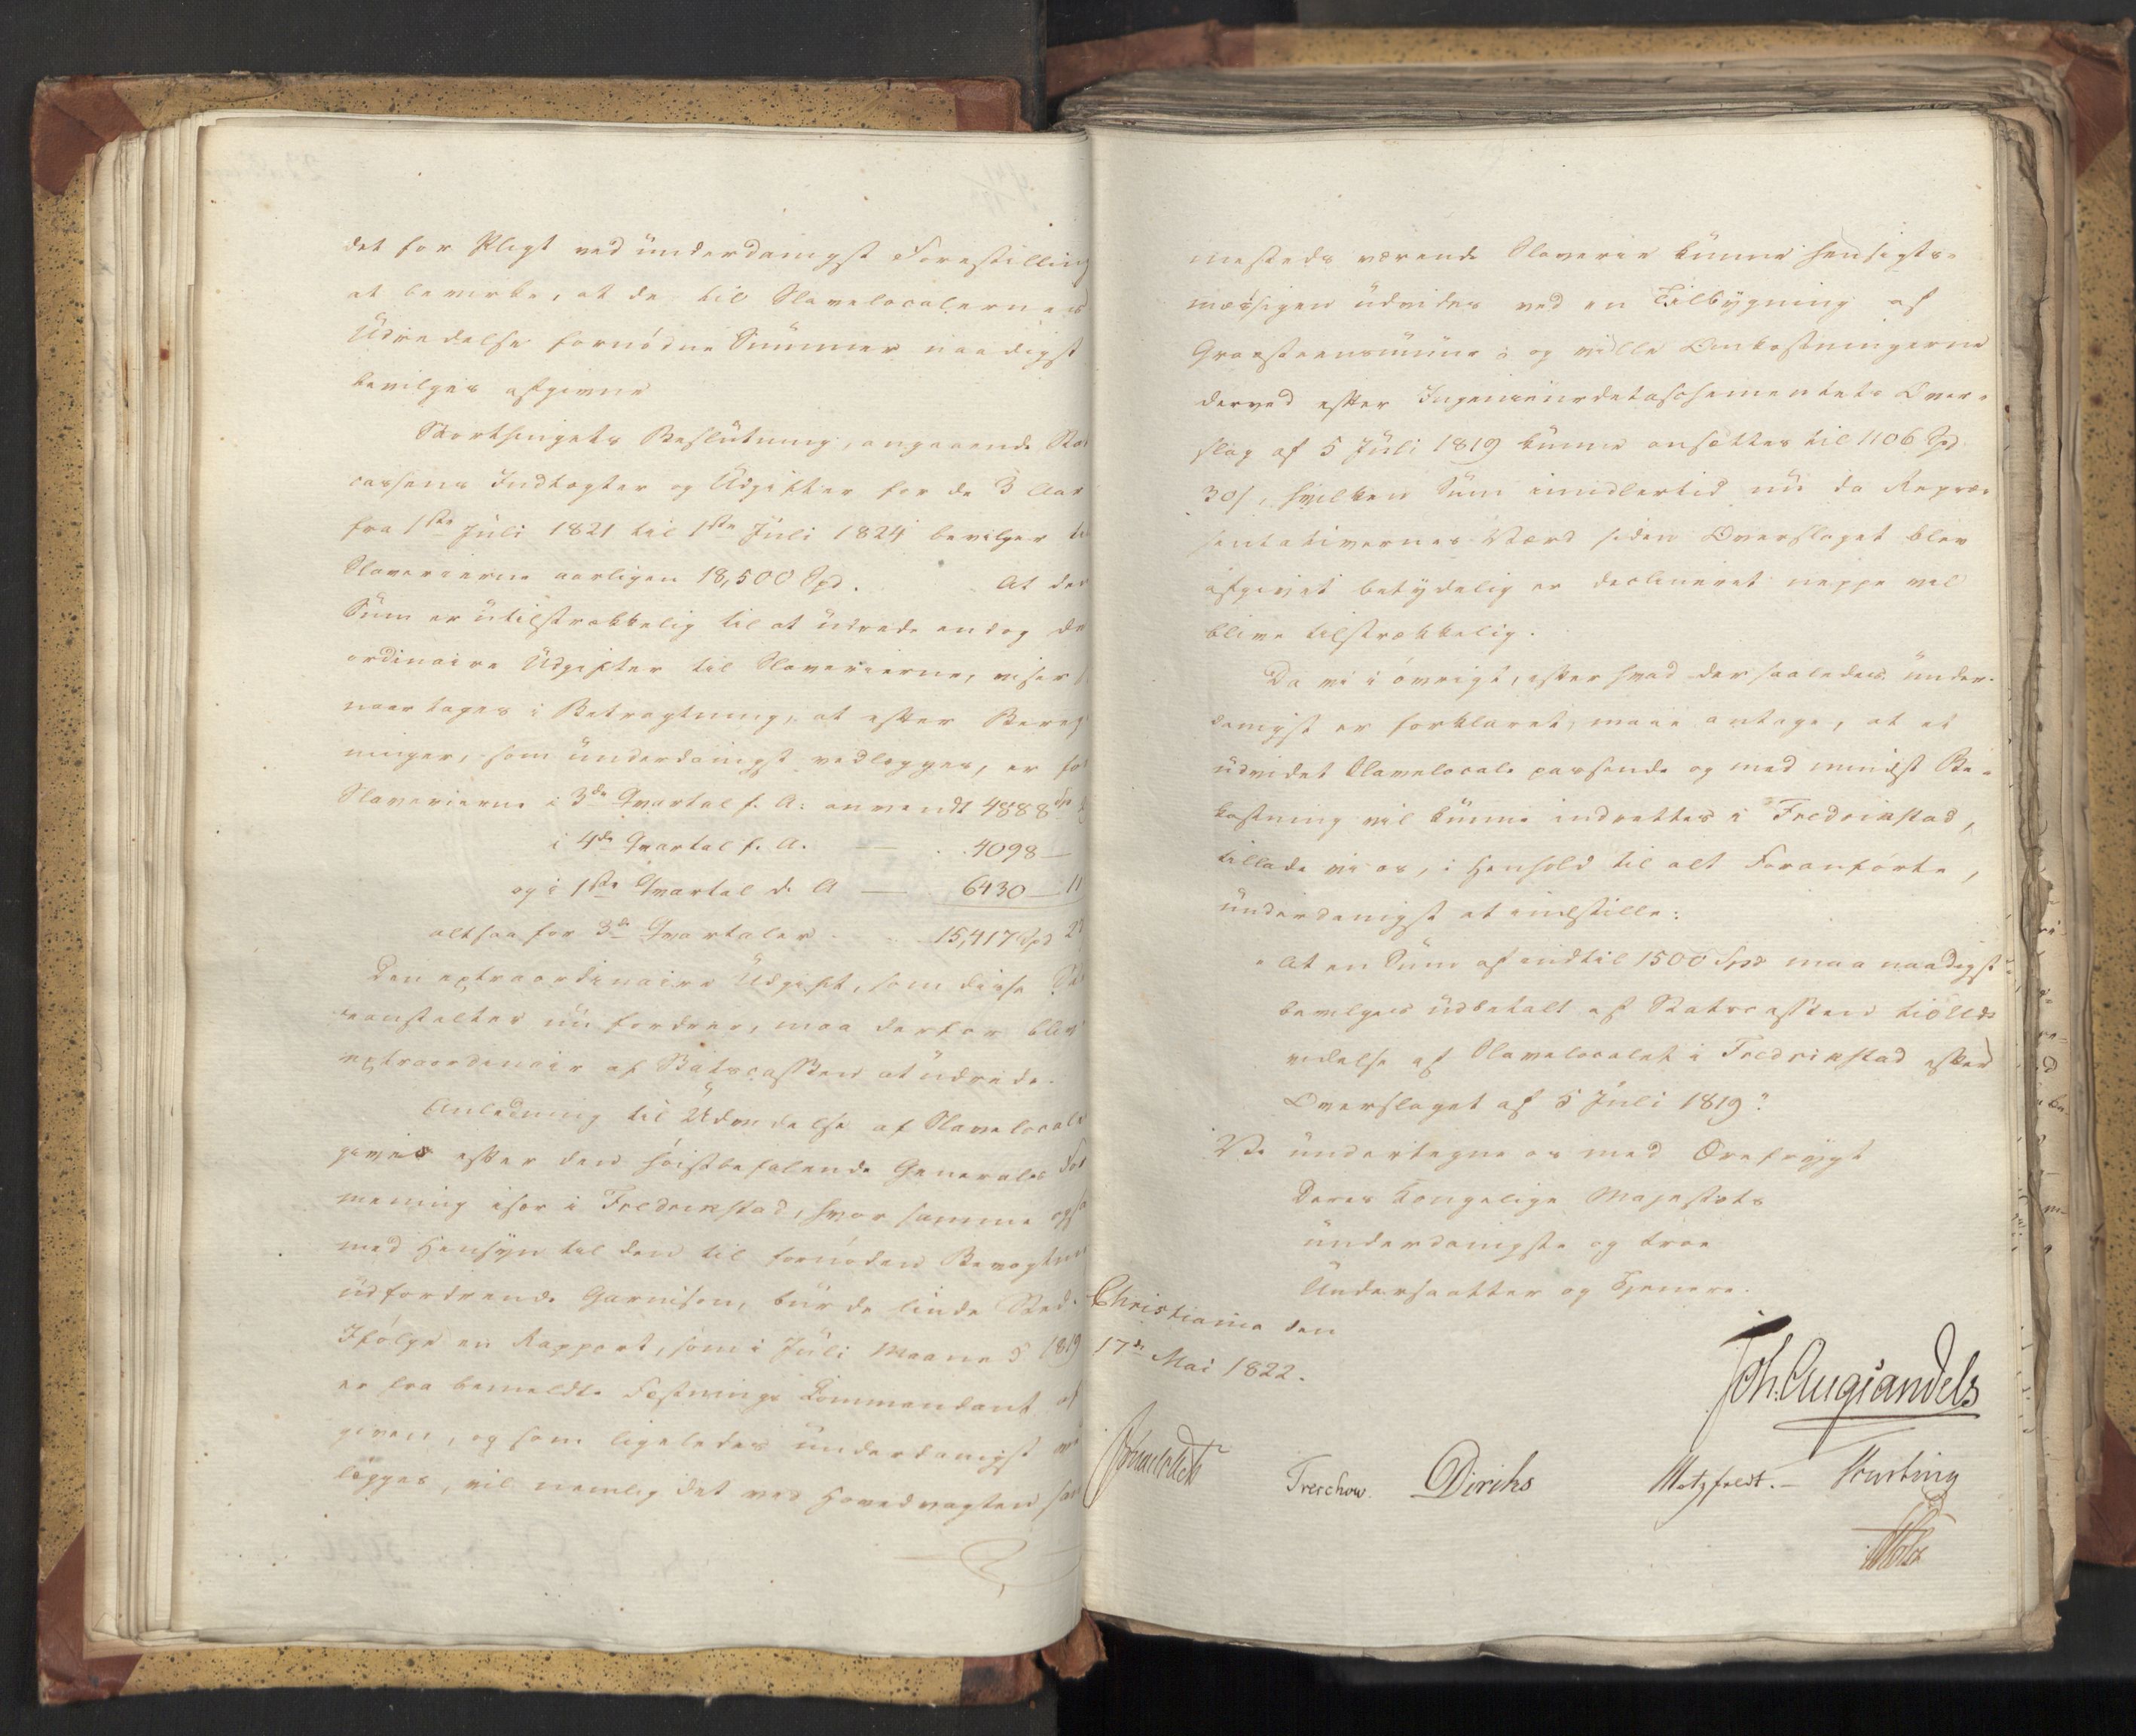 det for Pligt ved underdanigst Forestilling
at bevirke, at de til Slavelocalernes
Udvidelse fornødne Summer naadigst
bevilges afgivne
Storthingets Beslutning, angaaende Stats
cassens Indtægter og Udgifter for de 3 Aar
fra 1ste Juli 1821 til 1ste Juli 1824 bevilger til
Slaverierne aarligen 18,500 Spd. At den
Sum er utilstrækkelig til at udrede endog de
ordinaire Udgifter til Slaverierne, viser
naar tages i Betragtning, at efter Bereg
ninger, som underdanigst vedlægges, er for
Slaverierne i 3de Qvartal f. A. anvendt 4888 Sp
i 4de Qvartal f. A. — 4098 —
og i 1ste Qvartal d. A — 6430 — 11
altsaa for 3de Qvartaler 15,417 Spd 2
Den extraordinaire Udgift, som disse
anstalter nu fordrer, maa derfor blive
extraordinair af Statscassen at udrede.
Anledning til Udvidelse af Slavelocale
gives efter den høistbefalende Generals For
mening især i Fredrikstad, hvor samme ogsaa
med Hensyn til den til fornøden Bevogtning
udfordrende Garnison, burde finde Sted.
Ifølge en Rapport, som i Juli Maaned 1819
er fra bemeldte Fæstnings Commandant af
given, og som ligeledes underdanigst ved
lægges, vil nemlig det ved Hovedvagten sam
mesteds værende Slaverie kunne hensigts-
mæssigen udvides ved en Tilbygning af
Graasteensmuur, og ville Omkostningerne
derved efter Ingenieurdetaschementets Over-
slag af 5 Juli 1819 kunne ansættes til 1106 Spd
30 s, hvilken Sum imidlertid nu da Repræ-
sentativernes Værd siden Overslaget blev
afgivet betydelig er declineret neppe vil
blive tilstrækkelig.
Da vi i øvrigt, efter hvad der saaledes under-
danigst er forklaret, maae antage, at et
udvidet Slavelocale passende og med mindst Be-
kostning vil kunne indrettes i Fredrikstad,
tillade vi os, i Henhold til alt Foranførte,
underdanigst at indstille:
"At en Sum af indtil 1500 Spd maa naadigst
bevilges udbetalt af Statscassen til Ud-
videlse af Slavelocalet i Fredrikstad efter
Overslaget af 5 Juli 1819."
Vi undertegne os med Ærefrygt
Deres Kongelige Majestæts
underdanigste og troe
Undersaatter og Tjenere.
Christiania den
17de Mai 1822.
Joh. Aug. Sandels
Treschow. Diriks Motzfeldt. —